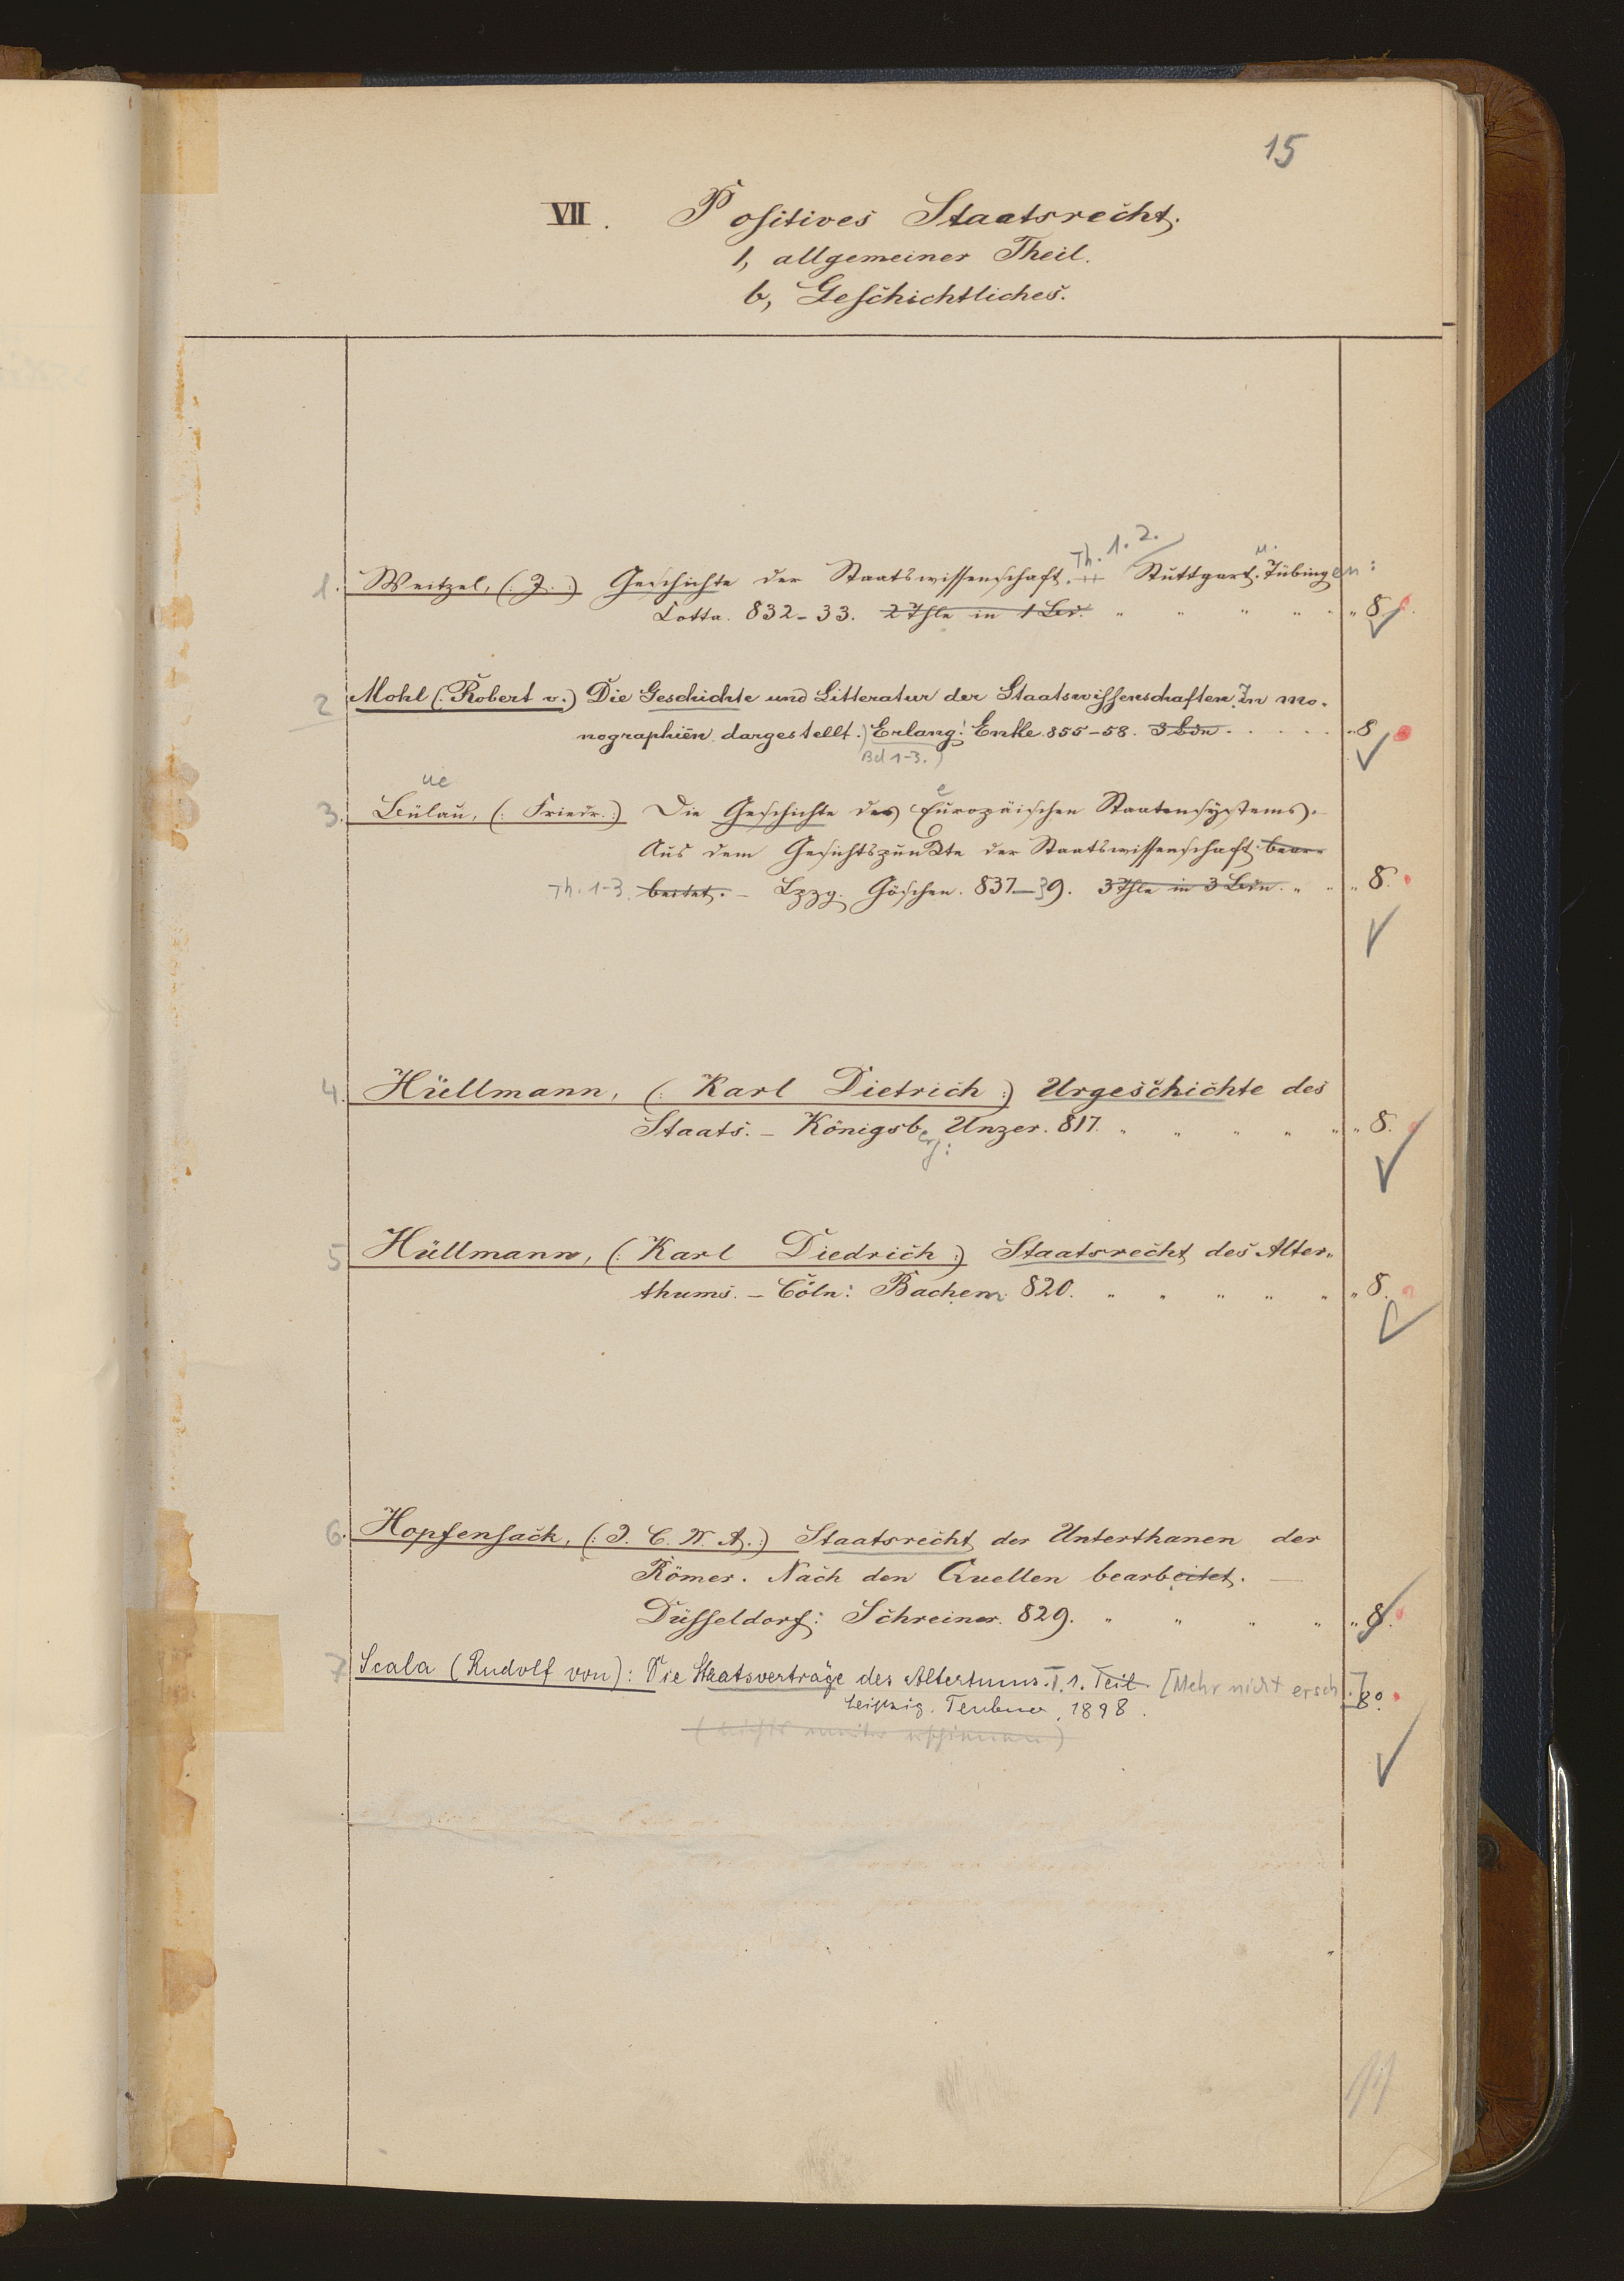 15
VII. Positives Staatsrecht.
1, allgemeiner Theil.
b, Geschichtliches.
Th. 1.2. u.
1. Weitzel, (: J. :) Geschichte der Staatswissenschaft. Stuttgart. Tübingen:
Cotta. 832-33. 2 Thle in 1 Bd. " " " " " " 8.
2 Mohl (: Robert v.) Die Geschichte und Litteratur der Staatswissenschaften. In mo-
nographien dargestellt.) Erlang: Enke. 855-58. 3 Bdn. . . . . . " 8
Bd 1-3.)
ue e
3. Bülau, (: Friedr. :) Die Geschichte des Europäischen Staatensystems.
Aus dem Gesichtspunkte der Staatswissenschaft bear-
Th. 1-3. beitet. - Lpzg. Göschen. 837-39. 3 Thle in 3 Bdn. " " " 8.
4. Hüllmann, (: Karl Dietrich :) Urgeschichte des
Staats. - Königsberg: Unzer. 817. " " " " " " 8.
5 Hüllmann, (: Karl Diedrich :) Staatsrecht des Alter-
thums. - Cöln: Bachem 820. " " " " " " 8.
6. Hopfensack, (: J. C. W. A. :) Staatsrecht der Unterthanen der
Römer. Nach den Quellen bearbeitet. —
Düsseldorf: Schreiner. 829. " " " " " 8.
7 Scala (Rudolf von): Die Staatsverträge des Altertums. T. 1. Teil. [Mehr nicht ersch.] 8°.
Leipzig. Teubner. 1898.
(nichts weiter erschienen)